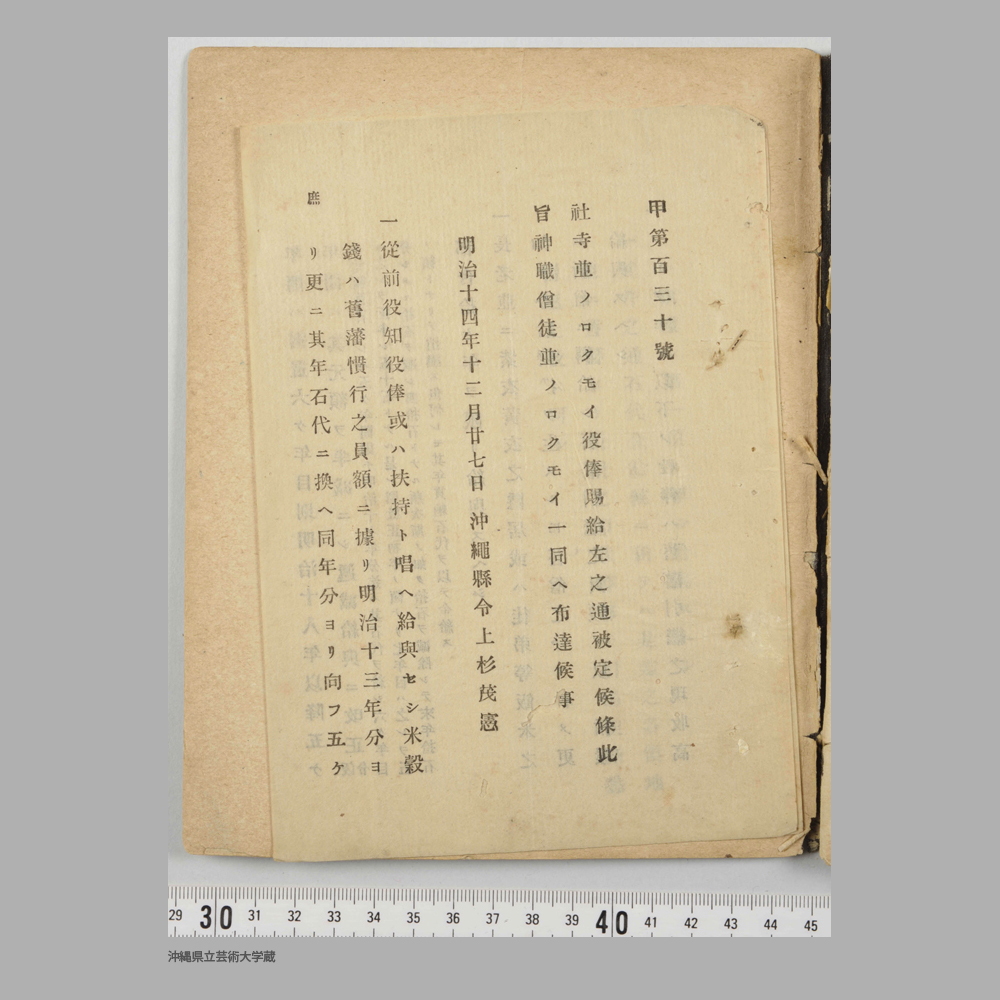 甲第百三十號
社寺並ノロクモイ役俸賜給左之通被定候條此
旨神職僧徒並ノロクモイ一同ヘ布達候事
明治十四年十二月廿七日沖繩縣令上杉茂憲
一從前役知役俸或ハ扶持ト唱ヘ給與セシ米穀
錢ハ舊藩慣行之員額ニ據リ明治十三年分ヨ
リ更ニ其年石代ニ換ヘ同年分ヨリ向フ五ケ
庶
29 30 31 32 33 34 35 36 37 38 39 40 41 42 43 44 45
沖縄県立芸術大学蔵